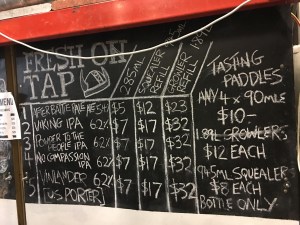 FRESH ON
TAP
285ML
SQUEALER
REFILL
GROWLER
REFILL
1.89L
1 TIGER BATTLE PALE ALE 5.4% $5 $12 $23
2 VIKING IPA 6.2% $7 $17 $32
3 POWDER TO THE PEOPLE IPA 6.2% $7 $17 $32
4 NO COMPASSION IPA $7 $17 $32
5 INLANDER 6.2% $7 $17 $32
PORTER]
TASTING
PADDLES
ANY 4 x 90mls
$10-
1.89L GROWLERS
$12 EACH
945ML SQUEALER
$8 EACH
BOTTLE ONLY
MENU